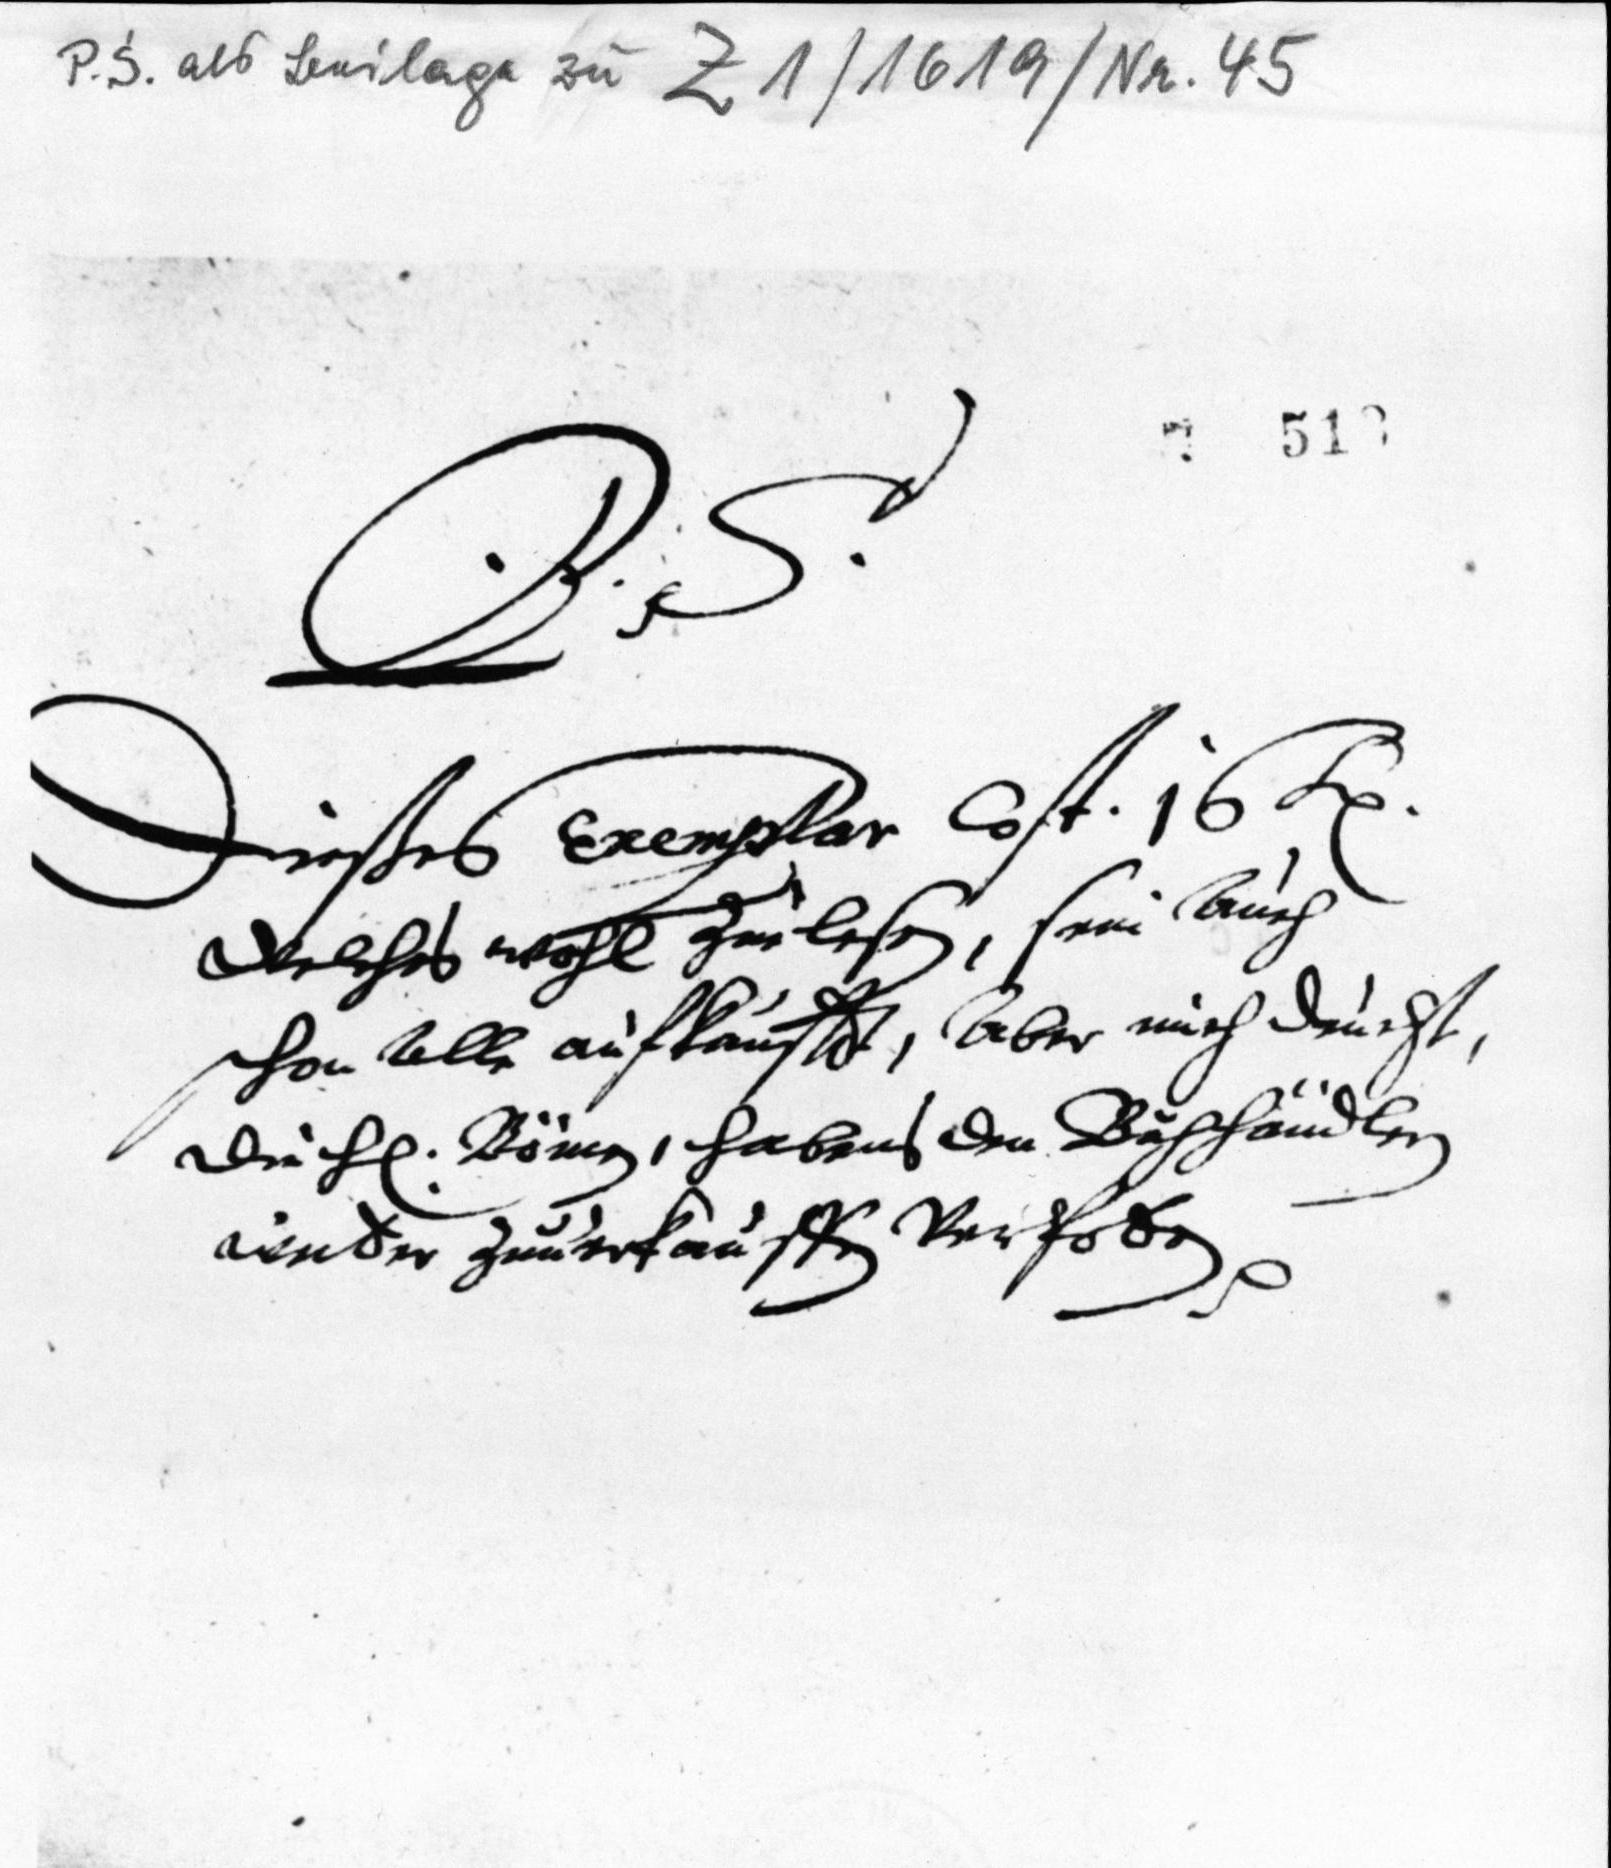 P.S. als Beilage zu Z 1/1619/Nr. 45
51
P. S.
Dieses Exemplar Cost. 16 Kr.
welches wohl zue lesen, sein auch
schon alle aufkaufft, aber mich deucht,
die H. Böhmen, habens den Buchhändlern
wieder zuuerkauffen verbotten